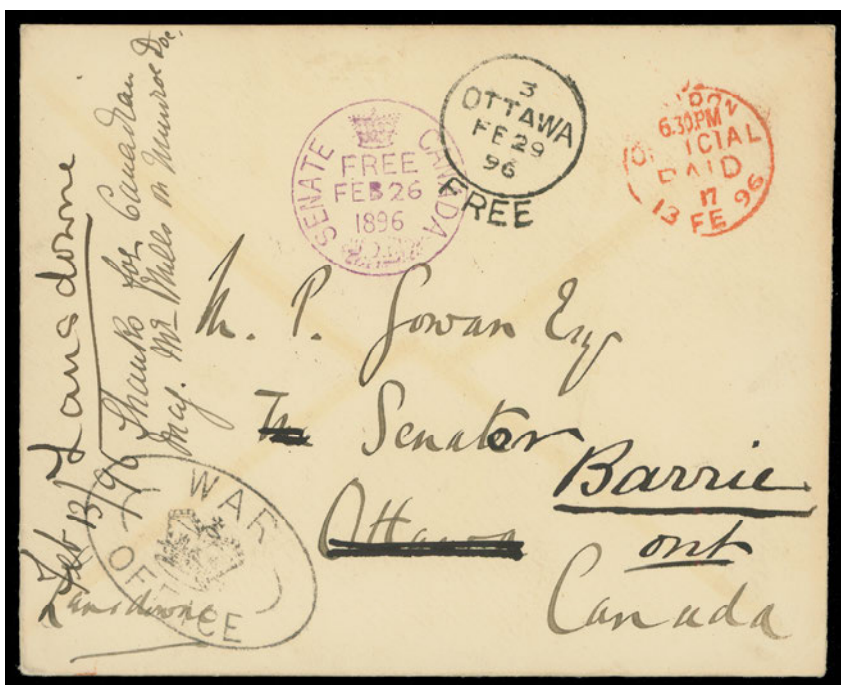 Feb 13/96 Lansdowne
Thanks for Canadian
Mag. Mr Mills on Munroe Doc.
SENATE CANADA
FREE
FEB 26
1896
3
OTTAWA
FE 29
96
FREE
6.30.PM
OFFICIAL
PAID
17
13 FE 96
P. Gowan Esq
Senator
Ottawa
Barrie
ont
Canada
WAR
OFFICE
Lansdowne